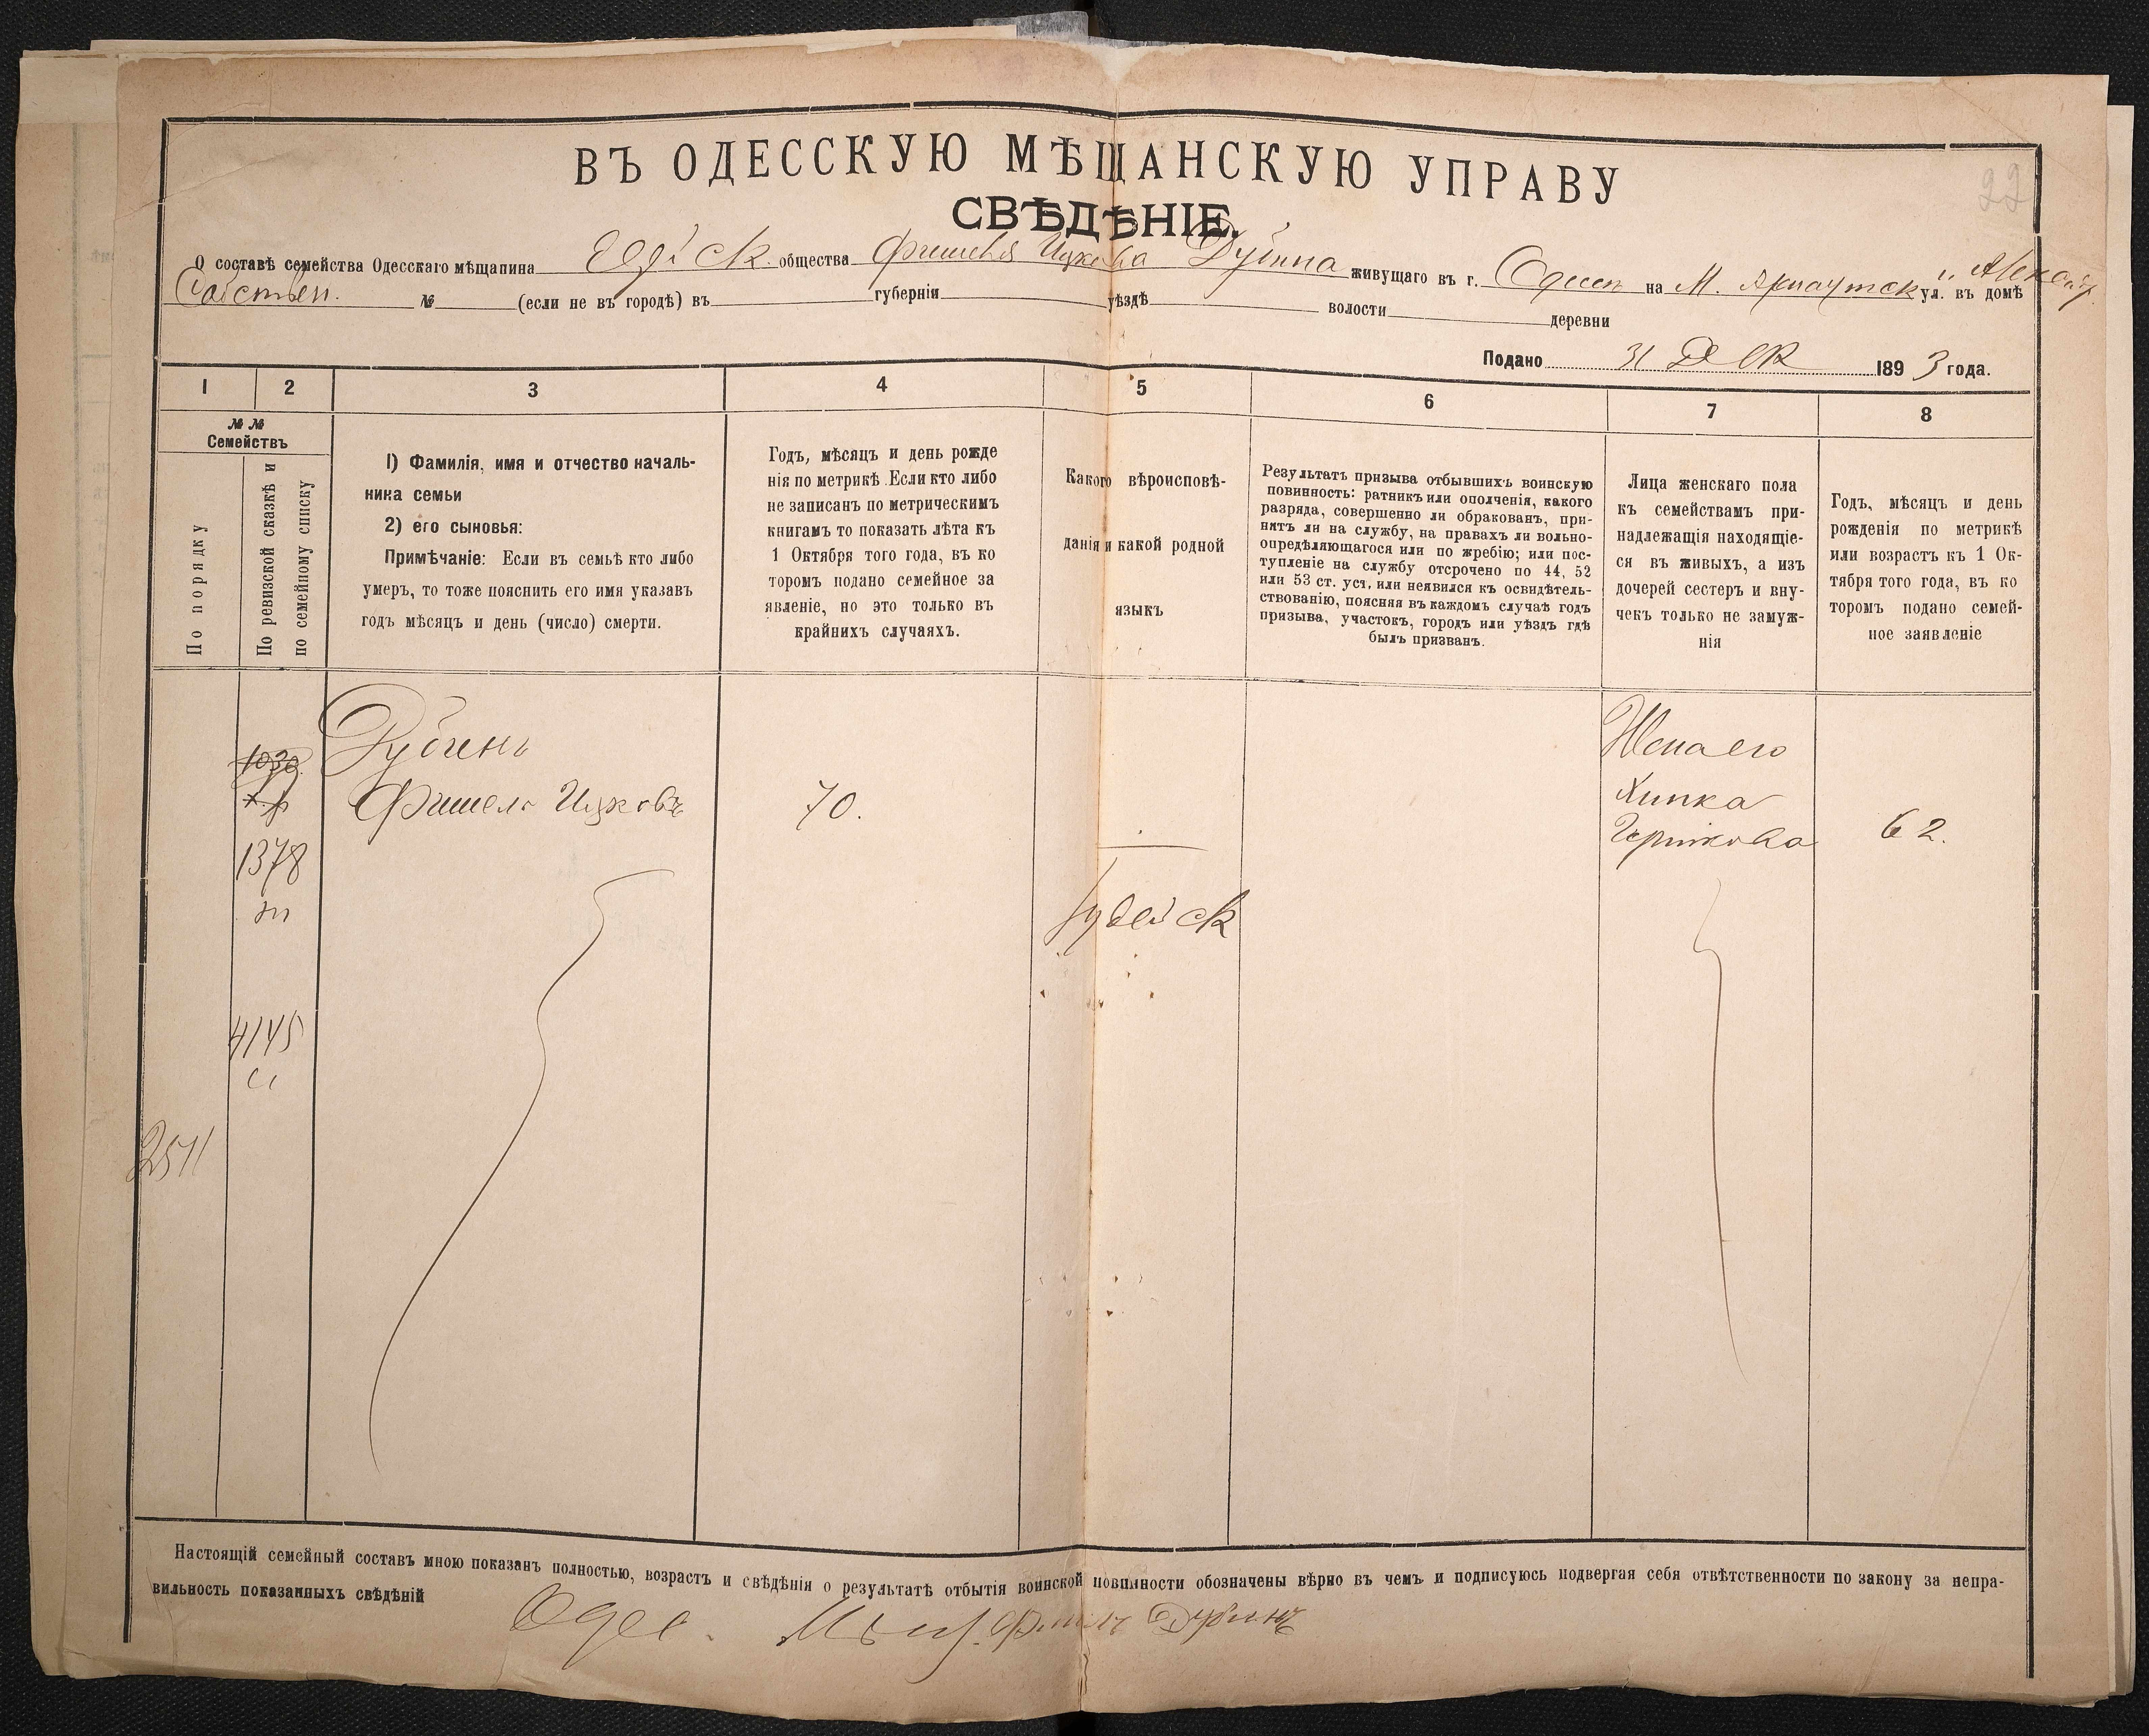 ВЪ ОДЕССКУЮ МѢЩАНСКУЮ УПРАВУ
22
СВѢДѢНІЕ.
О составѣ семейства Одесскаго мѣщанина общества Фишеля Ицкова Дубина живущаго въ г. Одессѣ на М. Арнаутск ул. въ домѣ
Собствен. № (если не въ городѣ) въ губерніи уѣздѣ волости деревни
Подано 31 Дек 1893 года.
1 2 3 4 5 6 7 8
№ № Семействъ
По порядку
По ревизской сказкѣ и
по семейному списку
1) Фамилія, имя и отчество началь-
ника семьи
2) его сыновья:
Примѣчаніе: Если въ семьѣ кто либо
умеръ, то тоже пояснить его имя указавъ
годъ мѣсяцъ и день (число) смерти.
Годъ, мѣсяцъ и день рожде
нія по метрикѣ. Если кто либо
не записанъ по метрическимъ
книгамъ то показать лѣта къ
1 Октября того года, въ ко
торомъ подано семейное за
явленіе, но это только въ
крайнихъ случаяхъ.
Какого вѣроисповѣ-
данія и какой родной
языкъ
Результатъ призыва отбывшихъ воинскую
повинность: ратникъ или ополченія, какого
разряда, совершенно ли обракованъ, при-
нятъ ли на службу, на правахъ ли вольно-
опредѣляющагося или по жребію; или пос-
тупленіе на службу отсрочено по 44, 52
или 53 ст. уст. или неявился къ освидѣтель-
ствованію, поясняя въ каждомъ случаѣ годъ
призыва, участокъ, городъ или уѣздъ гдѣ
былъ призванъ.
Лица женскаго пола
къ семействамъ при-
надлежащія находящіе-
ся въ живыхъ, а изъ
дочерей сестеръ и вну-
чекъ только не замуж-
нія
Годъ, мѣсяцъ и день
рожденія по метрикѣ
или возрастъ къ 1 Ок-
тября того года, въ ко
торомъ подано семей-
ное заявленіе
Дубинъ
Жена его
1030
Фишель Ицковъ 70.
Хинка
62.
1378
Іудейск
4145
2511
Настоящій семейный составъ мною показанъ полностью, возрастъ и свѣдѣнія о результатѣ отбытія воинской повинности обозначены вѣрно въ чемъ и подписуюсь подвергая себя отвѣтственности по закону за непра-
вильность показанныхъ свѣдѣній
Одес. Мѣщ. Фишель Дубинъ